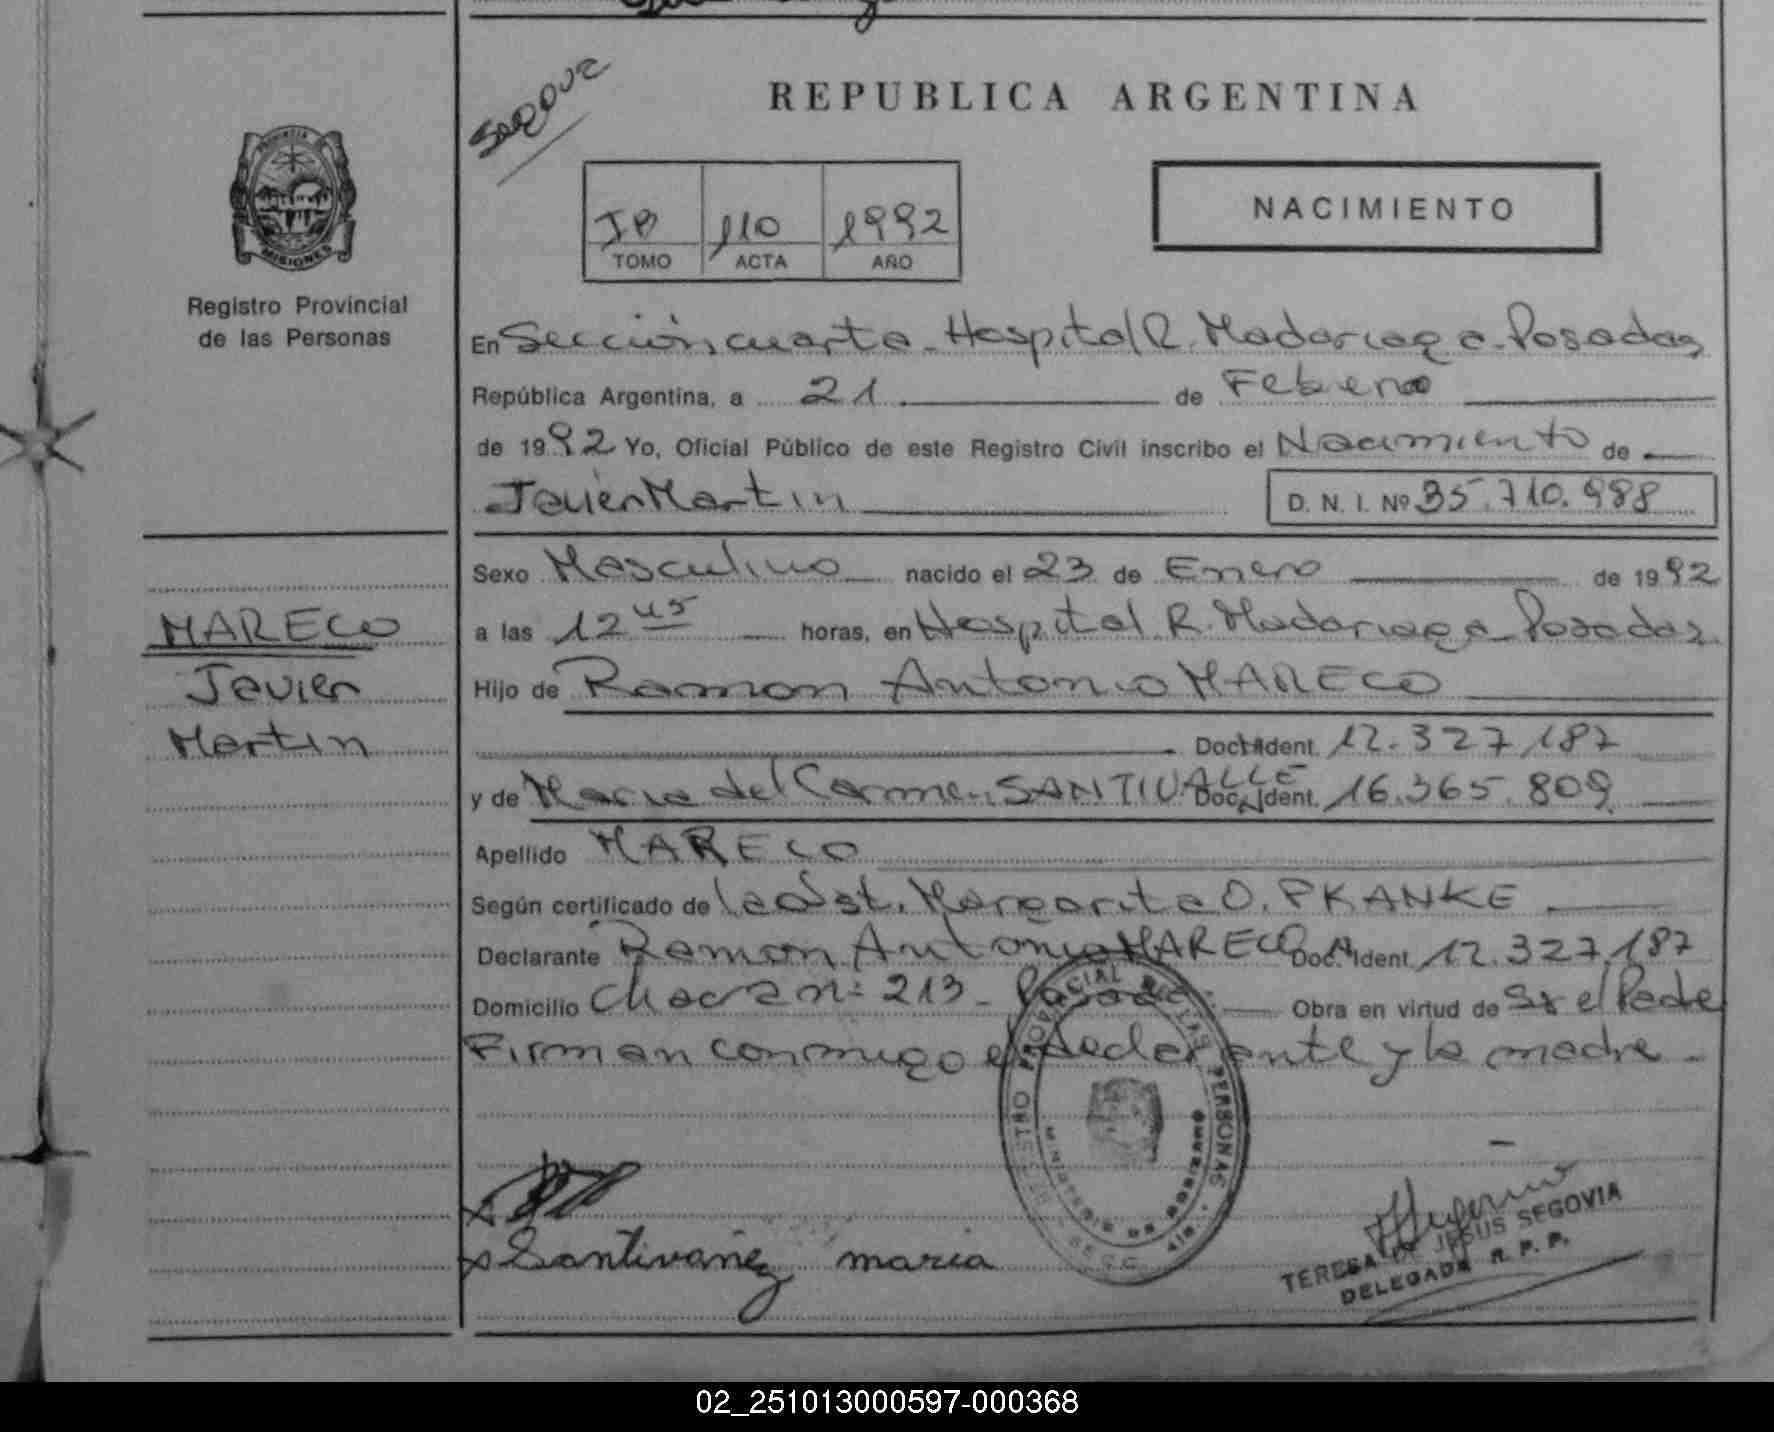 REPUBLICA ARGENTINA
110 1992
TOMO ACTA AÑO
NACIMIENTO
PROVINCIA
MISIONES
Registro Provincial
de las Personas
En Sección cuarta - Hospital R. Madariaga - Posadas
República Argentina, a 21 de Febrero
de 1992 Yo, Oficial Público de este Registro Civil inscribo el Nacimiento de
Javier Martin D. N. I. Nº 35.710.988
Sexo Masculino nacido el 23 de Enero de 1992
a las 12 45 horas, en Hospital R. Madariaga - Posadas
Hijo de Ramon Antonio MARECO
Doc. Ident. 12.327.187
y de Maria del Carmen SANTIVAÑEZ Doc. Ident. 16.365.809
Apellido MARECO
Según certificado de la Obst. Margarita O. PKANKE
Declarante Ramon Antonio MARECO Doc. Ident. 12.327.187
Domicilio Chacra nº 213 - Posadas Obra en virtud de Ser el Padre
Firman conmigo el declarante y la madre -
MARECO
Javier
Martin
REGISTRO PROVINCIAL DE LAS PERSONAS
MINISTERIO DE GOBIERNO
Santivañez maria
TERESA DE JESUS SEGOVIA
DELEGADA R. P. P.
02_251013000597-000368